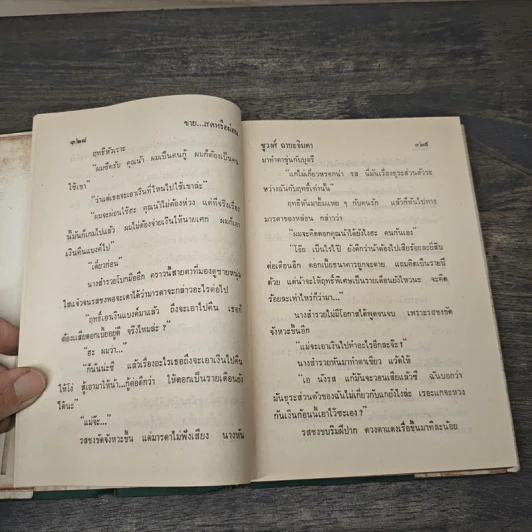 ๓๒๘
ชาย...
ฤทธิ์หัวเราะ
"ผมซีครับ คุณน้า ผมเป็นคนกู้ ผมก็ต้องเป็นคน
ใช้เขา"
"ว่าแต่เธอจะเอาเงินที่ไหนไปใช้เขาล่ะ"
"ผมจะผ่อนใช้ฮะ คุณน้าไม่ต้องห่วง แต่ที่จริงเรื่อง
นี้มันก็เกมไปแล้ว ผมไม่ต้องจ่ายเงินให้นายเศก ผมก็เอา
เงินคืนแบงค์ไป"
"เดี๋ยวก่อน"
นางสำรวยโบกมืออีก คราวนี้สายตาที่มองดูชายหนุ่ม
ใสแจ๋วจนรสชงพอจะเดาได้ว่ามารดาจะกล่าวอะไรต่อไป
"ฤทธิ์เอาเงินแบงค์มาแล้ว ถึงจะเอาไปคืน เธอก็
ต้องเสียดอกเบี้ยอยู่ดี จริงไหมล่ะ ?"
"ฮะ ผมว่า..."
"ก็นั่นน่ะซี แล้วเรื่องอะไรเธอถึงจะเอาไปคืน
ให้โง่ สู้เอามาให้น้า...กู้ต่อดีกว่า ให้ดอกเป็นรายเดือนยัง
ได้นะ"
"แม่จ๊ะ..."
รสชงขัดจังหวะขึ้น แต่มารดาไม่ฟังเสียง นางหัน
ชูวงศ์ ฉายะจินดา
๓๒๙
มาทำตาขุ่นกับบุตรี
"แกไม่เกี่ยวหรอกน่า รส นี่มันเรื่องธุระส่วนตัวระ
หว่างฉันกับฤทธิ์เท่านั้น"
ฤทธิ์หันมายิ้มแหย ๆ กับคนรัก แล้วก็หันไปทาง
มารดาของหล่อน กล่าวว่า
"ผมจะคิดดอกคุณน้าได้ยังไงฮะ คนกันเอง"
"โอ๊ย เป็นไรไป ยังดีกว่าน้าต้องไปเสียร้อยละยี่สิบ
ต่อเดือนอีก ดอกเบี้ยธนาคารถูกจะตาย แถมคิดเป็นรายปี
ด้วย แต่น้าจะให้ฤทธิ์พิเศษเป็นรายเดือนยังไหวนะ จะคิด
ร้อยละเท่าไหร่ก็ว่ามา..."
นางสำรวยไม่มีโอกาสได้พูดจนจบ เพราะรสชงขัด
จังหวะขึ้นอีก
"แม่จะเอาเงินไปทำอะไรอีกล่ะจ๊ะ ?"
นางสำรวยหันมาทำตาเขียว แว้ดให้
"เอ นังรส แกก็มันจะวอนเสียแล้วซี ฉันบอกว่า
มันธุระส่วนตัวของฉันไม่เกี่ยวกับแกยังไงล่ะ เรอะแกจะหวง
กันเงินก้อนนี้เอาไว้ซะเอง ?"
รสชงขบริมฝีปาก ดวงตาแดงเรื่อขึ้นมาทีละน้อย